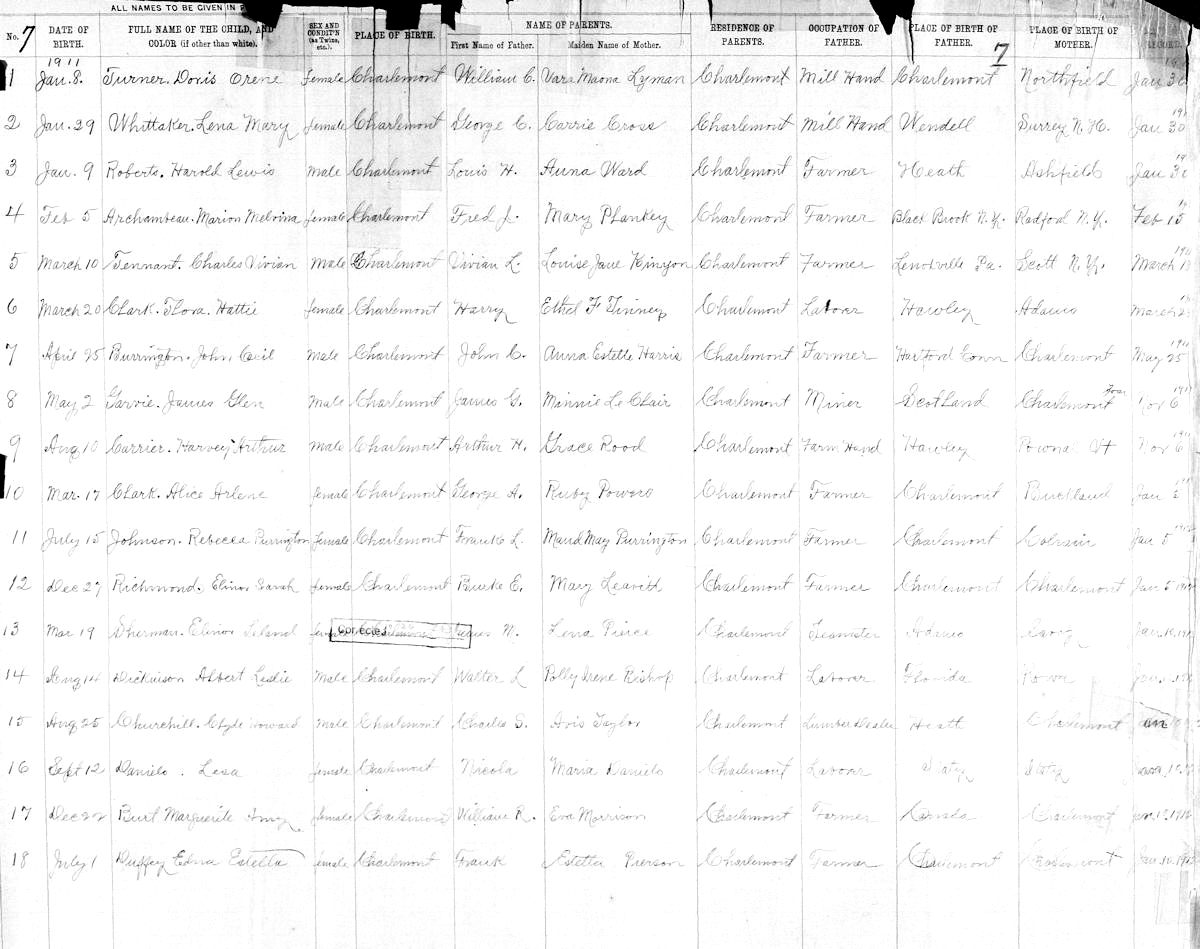 ALL NAMES TO BE GIVEN IN
No. 7 DATE OF BIRTH. FULL NAME OF THE CHILD, AND COLOR (if other than white). SEX AND CONDIT'N (as Twins, etc.) PLACE OF BIRTH. NAME OF PARENTS. First Name of Father. Maiden Name of Mother. RESIDENCE OF PARENTS. OCCUPATION OF FATHER. PLACE OF BIRTH OF FATHER. 7 PLACE OF BIRTH OF MOTHER.
1911
1 Jan. 8. Turner. Doris Orene female Charlemont William C. Vara Maona Lyman Charlemont Mill Hand Charlemont Northfield Jan 30
2 Jan. 29 Whittaker. Lena Mary female Charlemont George C. Carrie Cross Charlemont Mill Hand Wendell Surrey N.H. Jan 30
3 Jan. 9 Roberts. Harold Lewis Male Charlemont Louis H. Anna Ward Charlemont Farmer Heath Ashfield Jan 30
4 Feb 5 Archambeau. Marion Melvina female Charlemont Fred J. Mary Plankey Charlemont Farmer Black Brook N.Y. Radford N.Y. Feb 15
5 March 10 Tennant. Charles Vivian Male Charlemont Vivian L. Louise Jane Kinyon Charlemont Farmer Lenoxville Pa. Scott N.Y. March
6 March 20 Clark. Flora. Hattie female Charlemont Harry Ethel F Tinney Charlemont Laborer Hawley Adams March
7 April 25 Burrington. John Cecil Male Charlemont John C. Anna Estelle Harris Charlemont Farmer Hartford Conn Charlemont May 25
8 May 2 Garvie. James Glen Male Charlemont James G. Minnie LeClair Charlemont Miner Scotland Charlemont Nov 6
9 Aug 10 Carrier. Harvey Arthur Male Charlemont Arthur H. Grace Rood Charlemont Farm Hand Hawley Pownal Vt Nov 6
10 Mar. 17 Clark. Alice Arlene female Charlemont George A. Ruby Powers Charlemont Farmer Charlemont Buckland Jan
11 July 15 Johnson. Rebecca Purrington female Charlemont Frank L. Maud May Purrington Charlemont Farmer Charlemont Colrain Jan 5
12 Dec 27 Richmond. Elinor Sarah female Charlemont Burke E. Mary Leavitt Charlemont Farmer Charlemont Charlemont Jan 5
13 Mar 19 Sherman. Elinor Leland female Corrected Charlemont W. Lena Pierce Charlemont Teamster Adams Savoy Jan. 10
14 Aug 14 Dickinson Albert Leslie Male Charlemont Walter L Polly Irene Bishop Charlemont Laborer Florida Rowe Jan.
15 Aug 25 Churchill. Clyde Howard Male Charlemont Charles S. Avis Taylor Charlemont Lumber Dealer Heath Charlemont
16 Sept 12 Daniels. Lesa female Charlemont Nicola Maria Daniels Charlemont Laborer Italy Italy
17 Dec 22 Burt Marguerite Amy female Charlemont William R. Eva Morrison Charlemont Farmer Canada Charlemont Jan. 1912
18 July 1 Duffey Edna Estella female Charlemont Frank Estella Pierson Charlemont Farmer Charlemont Charlemont Jan 10. 1912